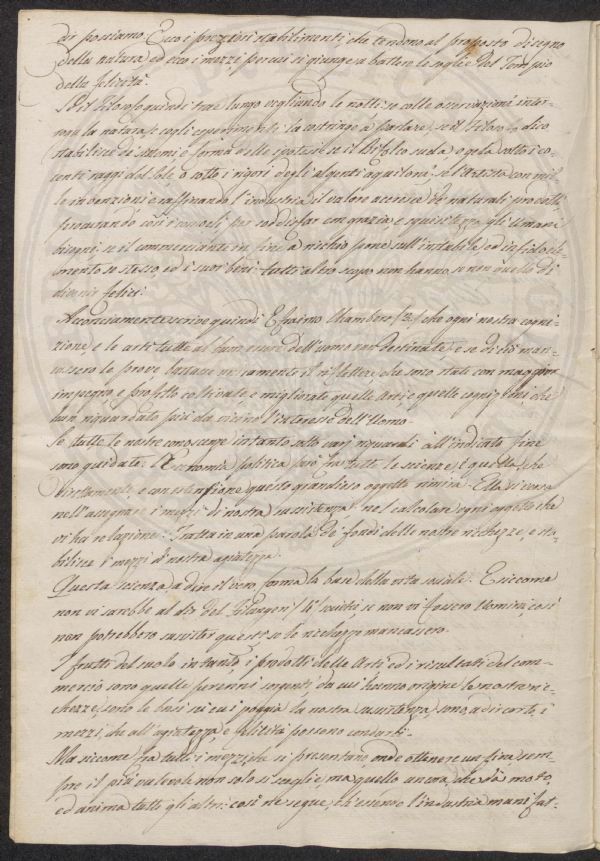 dir possiamo. Ecco i preziosi stabilimenti, che tendono al proposto disegno
della natura, ed ecco i mezzi, per cui si giunge a battere le soglie del Tempio
della felicità.
Se il Filosofo quindi trae lungo vegliando le notti, e colle osservazioni inter-
roga la natura, e cogli esperimenti la costringe a parlare, se il Filosofo dico
stabilisce de' sistemi e forma delle ipotesi, se il Bifolco suda, o gela sotto i co-
centi raggi del Sole, o sotto i rigori degli algenti aquiloni, se l'Artista con mil-
le invenzioni e raffinando l'industria il valore accresce de' naturali prodotti
procurando così i comodi per soddisfar con grazia, e squisitezza gli Umani
bisogni, se il commerciante in fine a rischio pone sull'instabile, ed infido ele-
mento se stesso, ed i suoi beni tutti altro scopo non hanno, se non quello di
divenir felici.
Acconciamente scrive quindi Efraimo Chambers (3) che ogni nostra cogni-
zione, e le arti tutte al ben essere dell'uomo van destinate, e se di ciò man-
cassero le prove bastare unicamente il riflettere, che sono state con maggior
impegno, e profitto coltivate e migliorate quelle Arti e quelle cognizioni, che
han riguardato più da vicino l'interesse dell'Uomo.
Se tutte le nostre conoscenze intanto sotto varj riguardi all'indicato fine
sono guidate: l'Economia politica però fra tutte le scienze, è quella, che
direttamente, e con estenzione questo grandioso oggetto rimira. Ella si versa
nell'assegnare i mezzi di nostra sussistenza, nel calcolare ogni oggetto che
vi ha relazione: Tratta in una parola de' fondi delle nostre ricchezze, e sta-
bilisce i mezzi di nostra agiatezza.
Questa scienza, a dire il vero, forma la base della vita sociale. E siccome
non vi sarebbe al dir del Filangeri (4) società, se non vi fossero Uomini, così
non potrebbero sussister questi, se le ricchezze mancassero.
I frutti del suolo intanto, i prodotti delle Arti ed i risultati del com-
mercio sono quelle perenni sorgenti, da cui hanno origine le nostre ric-
chezze, sono le basi su cui poggia la nostra sussistenza, sono, a dir corto, i
mezzi, che all'agiatezza, e felicità possono condurci.
Ma siccome fra tutti i mezzi, che si presentano onde ottenere un fine sem-
pre il più valevole non solo si sceglie, ma quello ancora, che dà moto,
ed anima tutti gli altri: così ne segue, ch'essendo l'industria manifat-